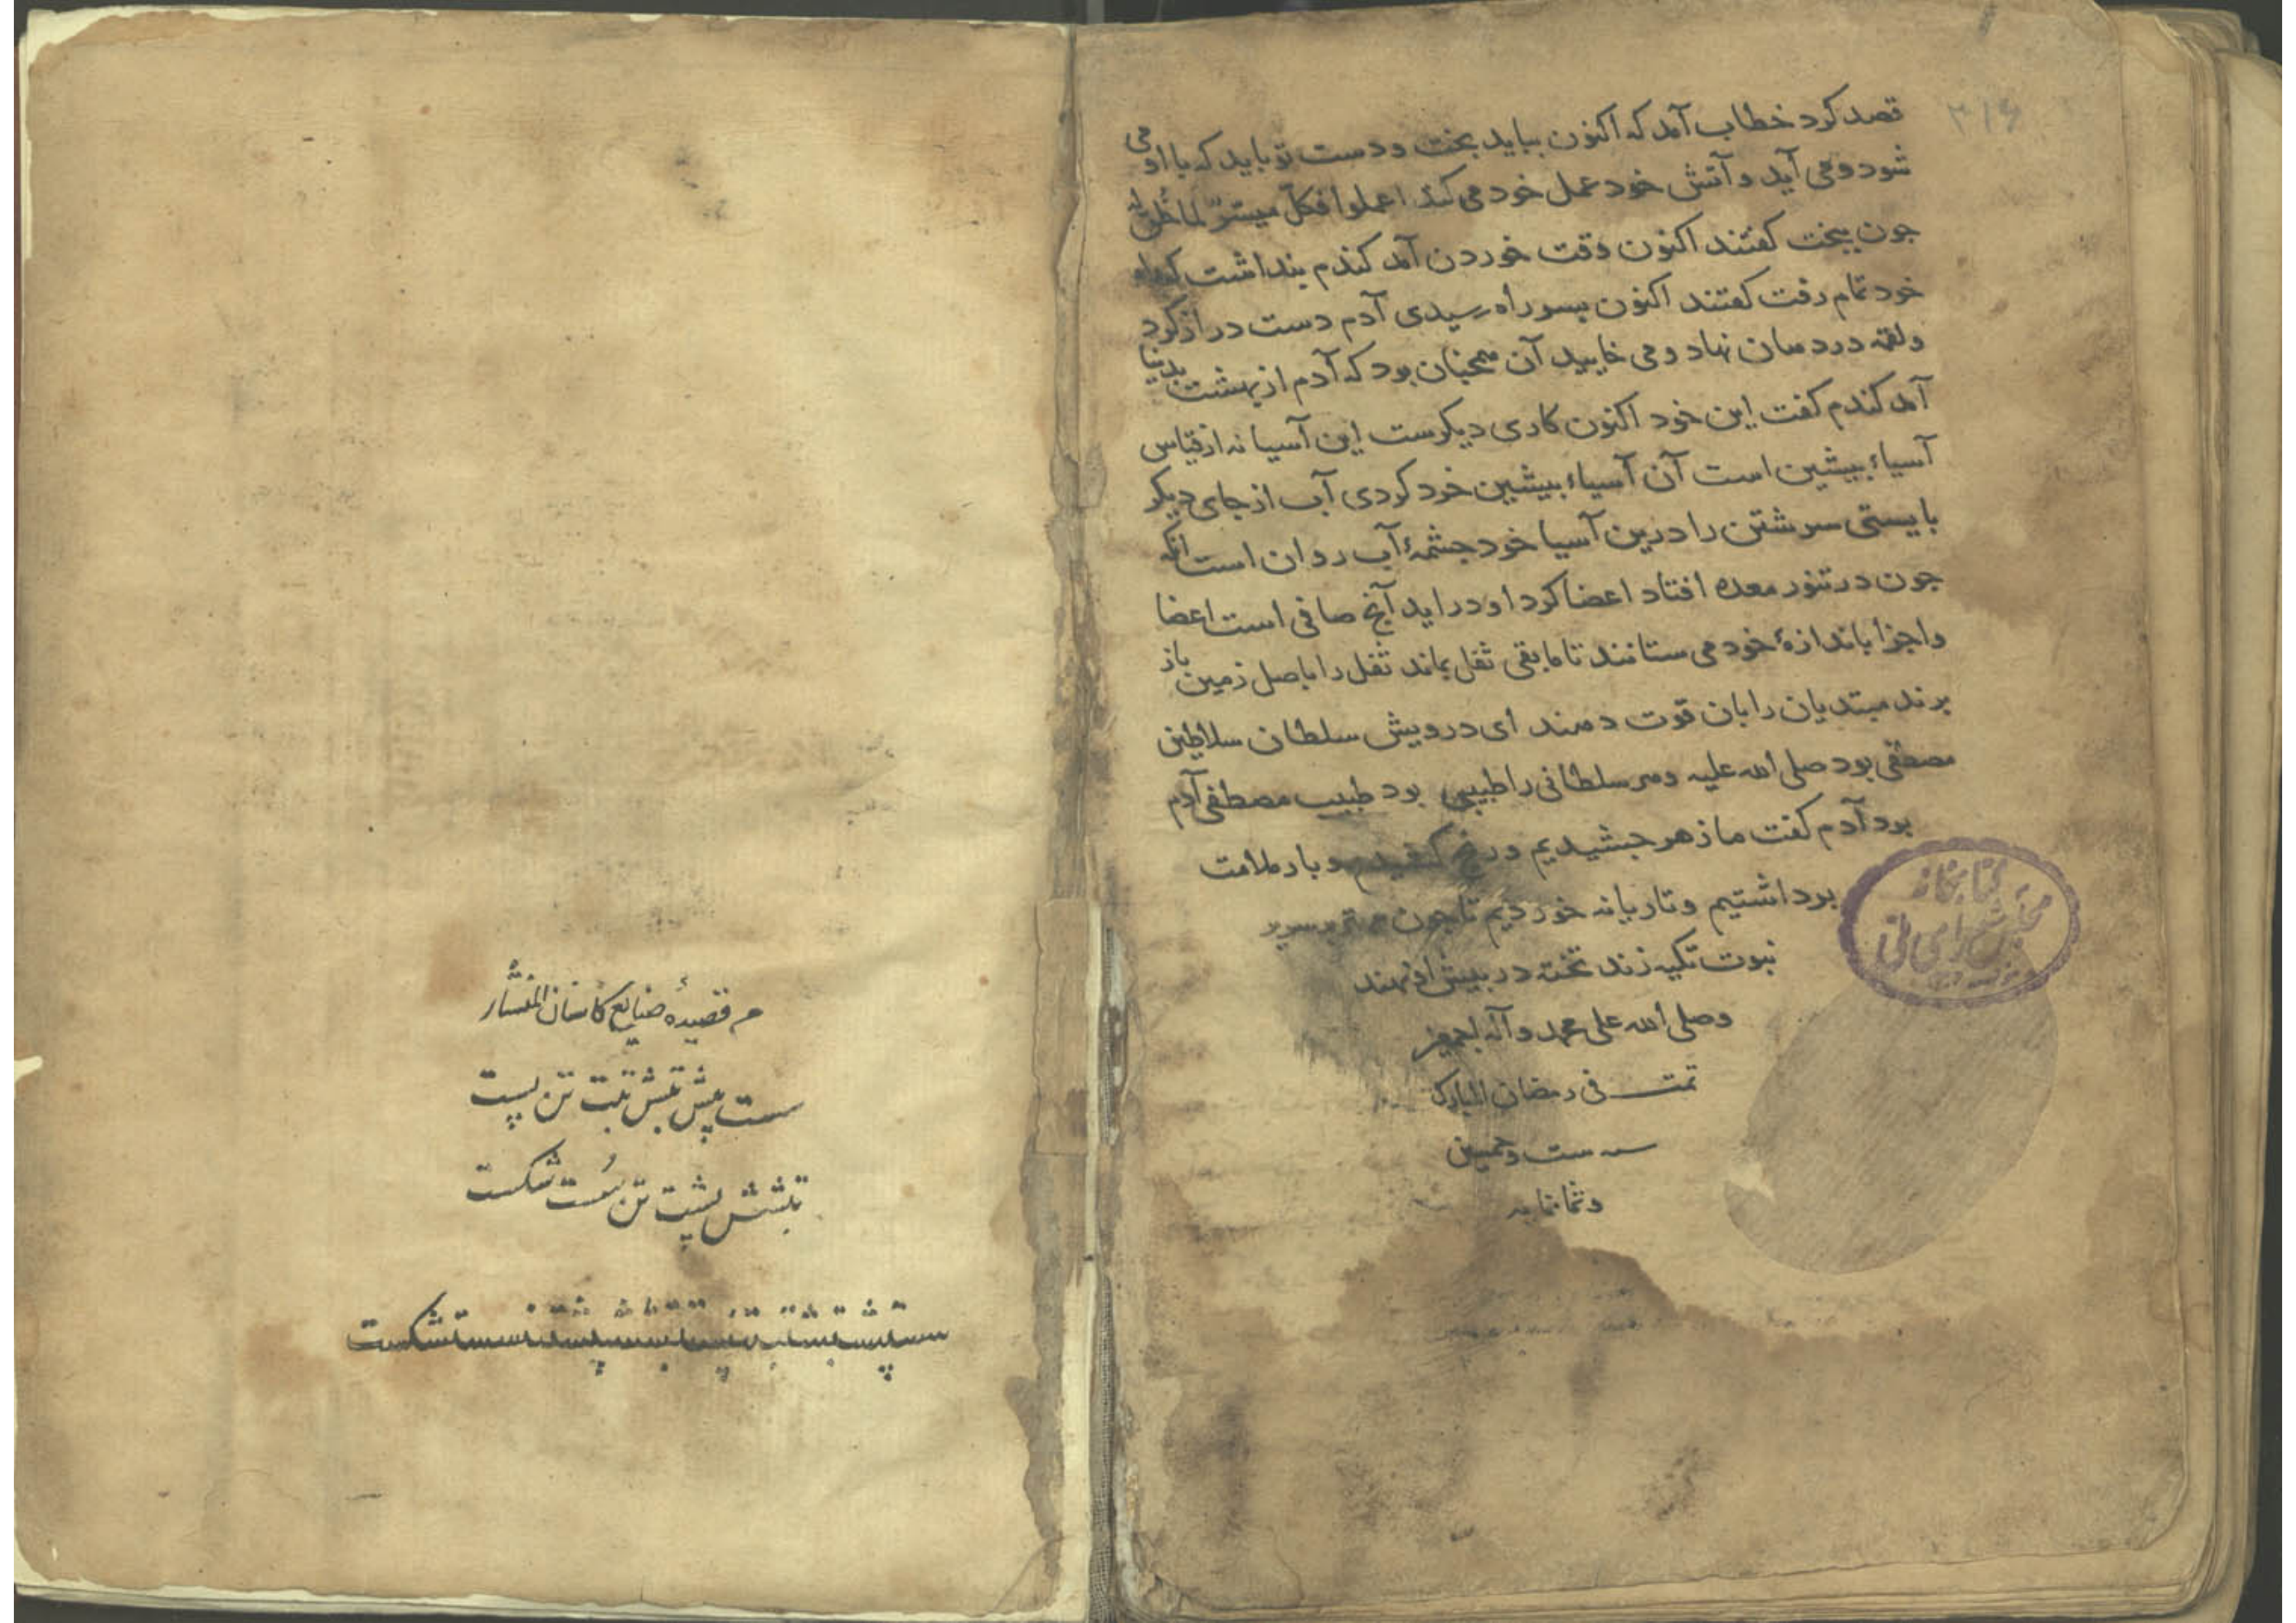 ۳۱۶
قصد کرد خطاب آمد که اکنون بباید بخت و دست تو باید که با او می
شود و می آید و آتش خود عمل خود می کند اعملوا فکل میسّر لما خُلق له
جون ببخت کفتند اکنون وقت خوردن آمد کندم بنداشت که راه
خود تمام رفت کفتند اکنون بسر راه رسیدی آدم دست دراز کرد
ولقمه در دهان نهاد و می خایید آن همجنان بود که آدم از بهشت بدنیا
آمد کندم کفت این خود اکنون کاری دیکرست این آسیا نه از قیاس
آسیاء بیشین است آن آسیاء بیشین خرد کردی آب از جای دیکر
بایستی سرشتن را درین آسیا خود جشمهٔ آب روان است آنکه
جون در تنور معده افتاد اعضا کرد او دراید آنج صافی است اعضا
واجزا باندازهٔ خود می ستانند تا مابقی ثفل بماند ثفل را باصل زمین باز
برند مبتدیان را بان قوت دهند ای درویش سلطان سلاطین
مصطفی بود صلی الله علیه و هر سلطانی را طبیبی بود طبیب مصطفی آدم
بود آدم کفت ما زهر جشیدیم و رنج کشیدیم و بار ملامت
برداشتیم و تازیانه خوردیم تا جون مهتر بر سریر
نبوت تکیه زند تخته در بیش او نهند
وصلی الله علی محمد و آله اجمعین
تمت فی رمضان المبارک
سنه ست و خمسین
وثمانمایه
کتابخانه
مجلس شورای ملی
قصیدهٔ صنایع
ست پیش تبش تبت تن پست
تبشش پشت تن بست شکست